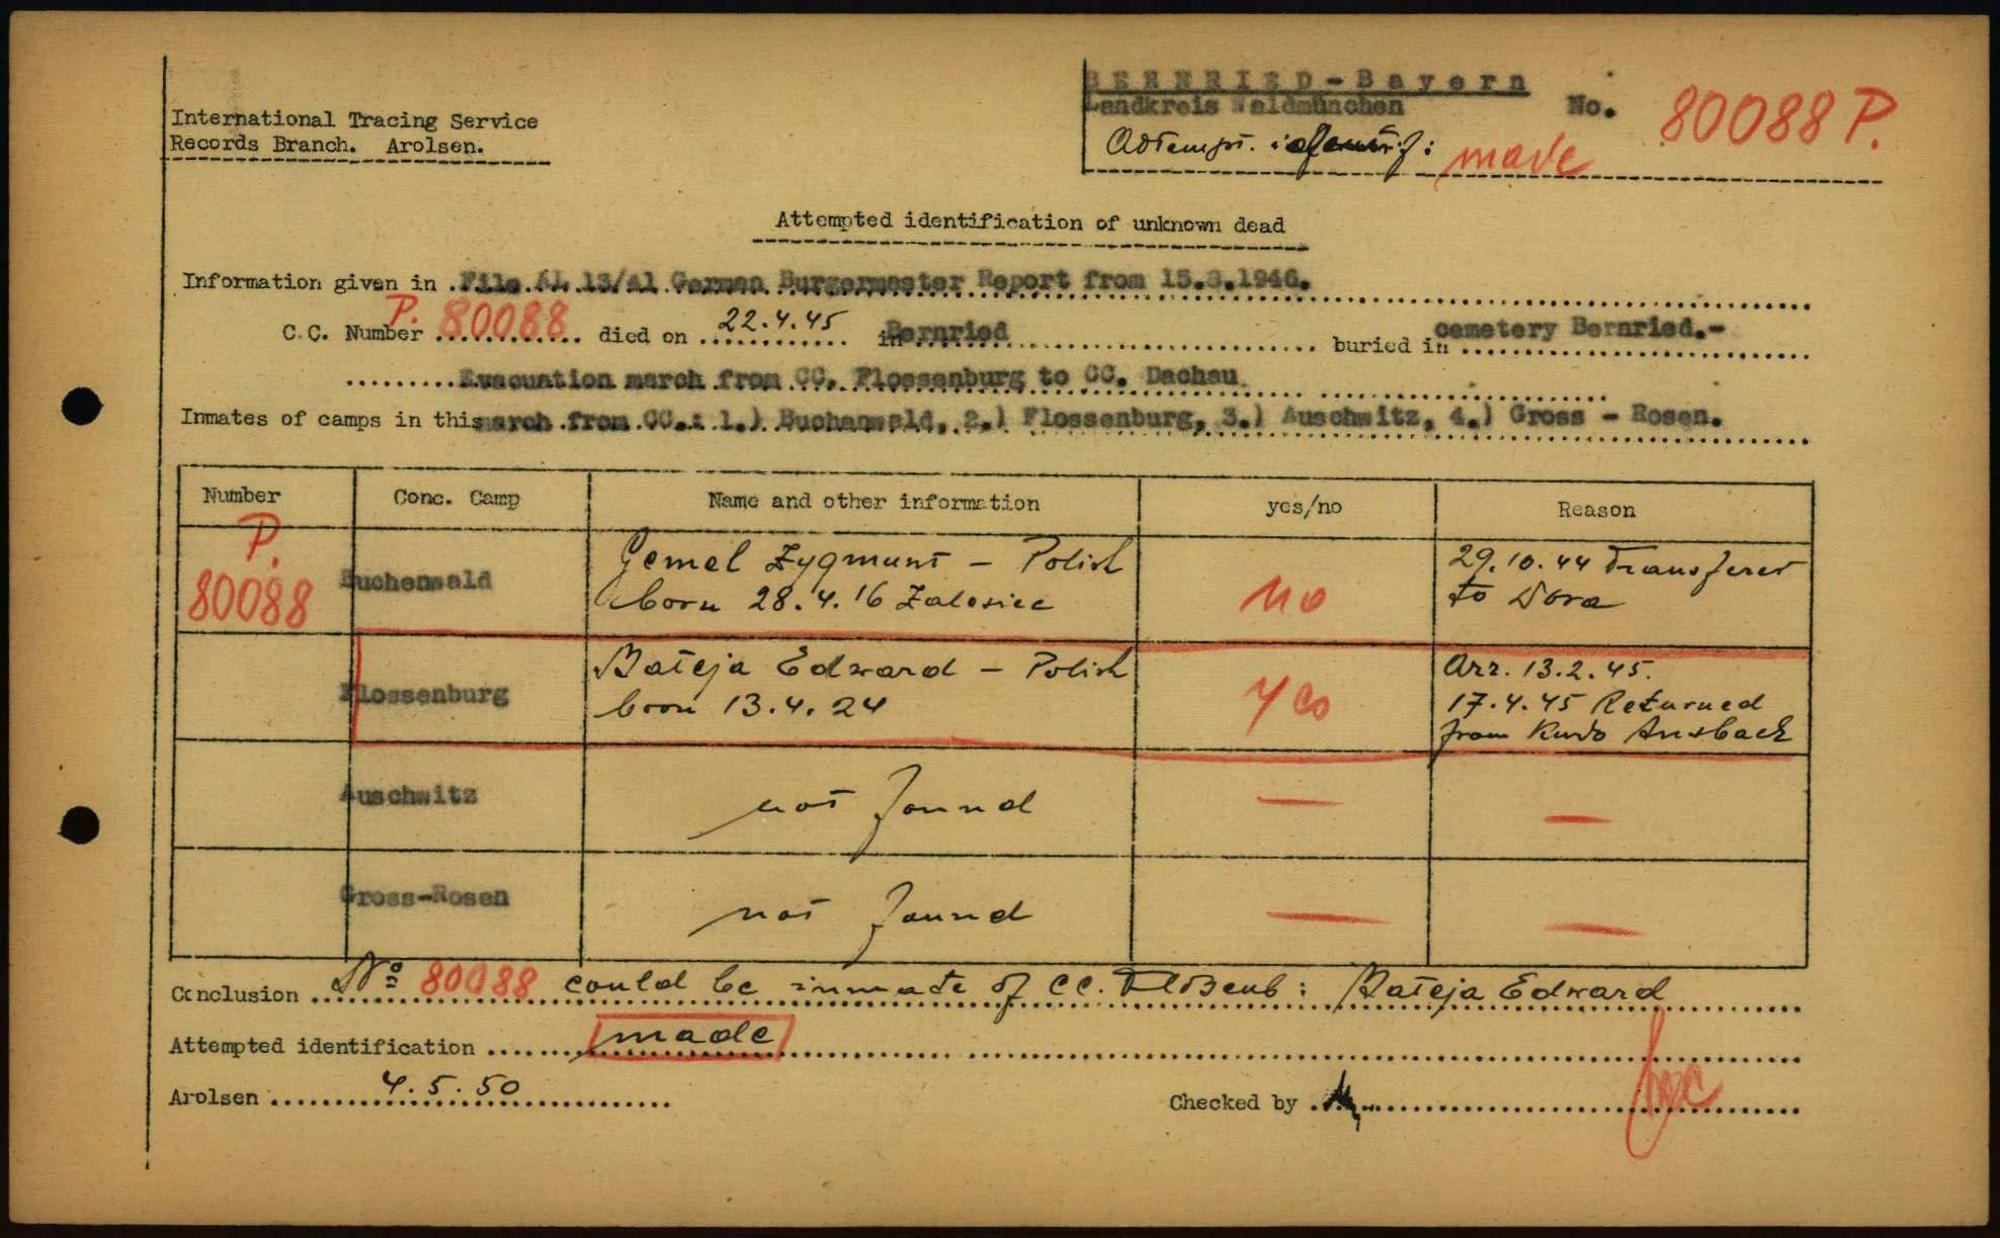 BERNRIED-Bayern
Landkreis Waldmünchen No. 80088 P.
International Tracing Service
Records Branch. Arolsen.
made
Attempted identification of unknown dead
Information given in File AL 13/A1 German Burgermester Report from 15.3.1946.
P.
C.C. Number 80088 died on 22.4.45 in Bernried buried in cemetery Bernried.-
Evacuation march from CC. Flossenburg to CC. Dachau
Inmates of camps in this march from CC.: 1.) Buchenwald, 2.) Flossenburg, 3.) Auschwitz, 4.) Gross - Rosen.
Number Conc. Camp Name and other information yes/no Reason
P. 80088 Buchenwald Gemel Zygmunt - Polish no 29.10.44 Transferet
born 28.4.16 Zalesiee to Dora
Flossenburg Bateja Edward - Polish yes Arr. 13.2.45.
born 13.4.24 17.4.45 Returned
from Kmdo Ansbach
Auschwitz not found — —
Gross-Rosen not found — —
Conclusion Nº 80088 could be inmate of CC. Floßenb: Bateja Edward
Attempted identification made
Arolsen 4.5.50 Checked by